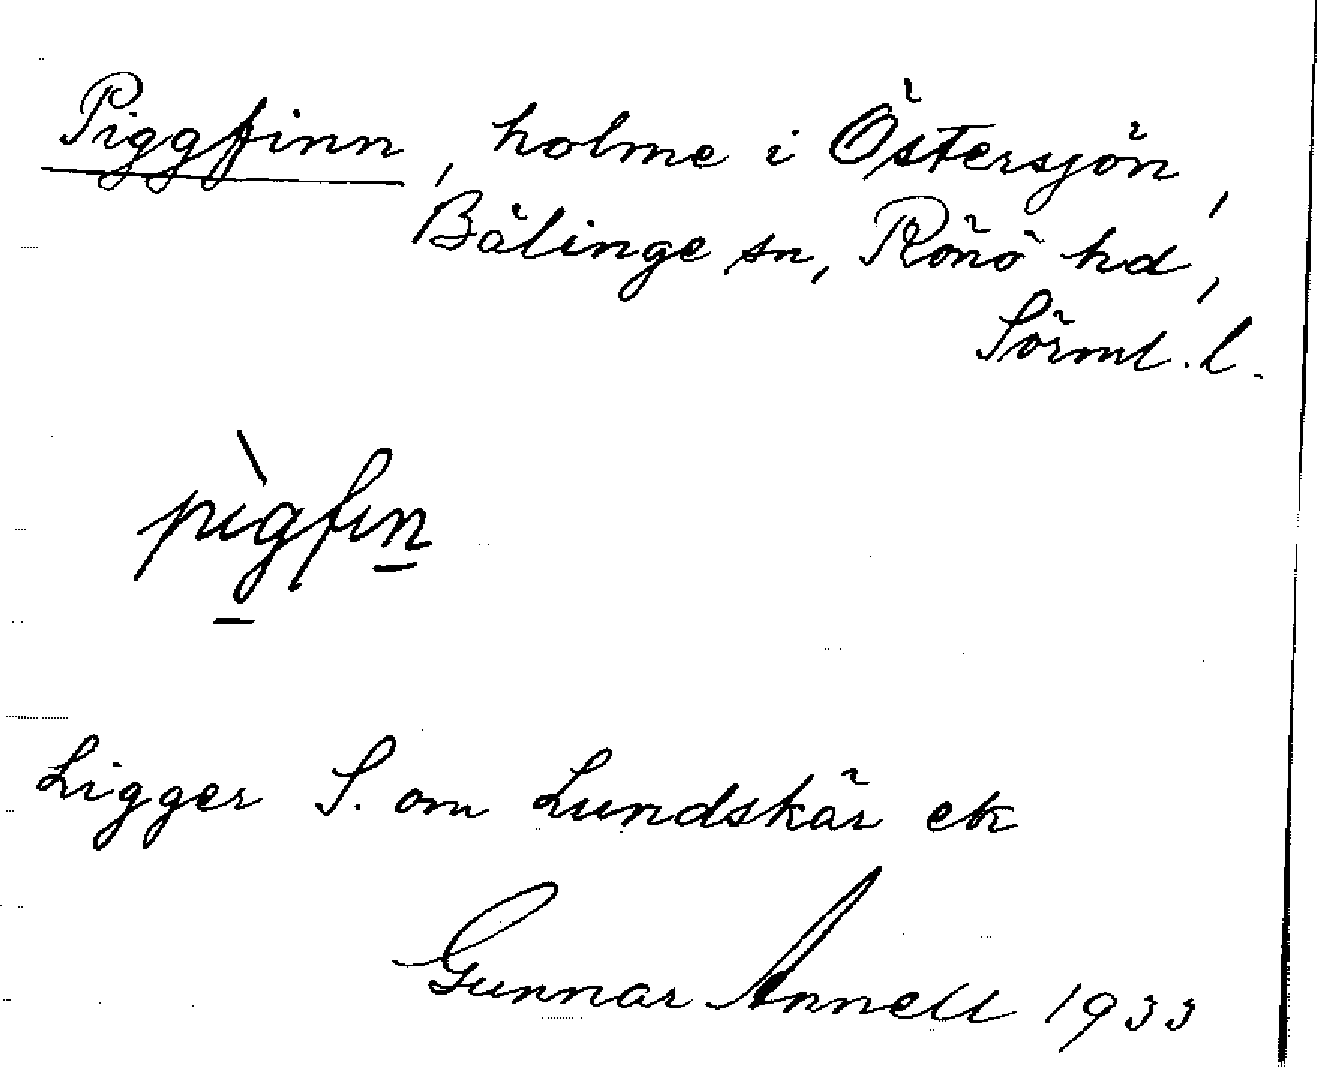 Piggfinn, holme i Östersjön,
Bälinge sn, Rönö hd,
Sörml. l.
pìgfin
Ligger S. om Lundskär ek
Gunnar Annell 1933